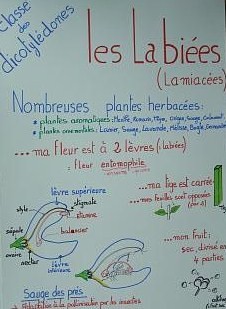 Classe
des
dicotylédones
les Labiées
(Lamiacées)
Nombreuses plantes herbacées:
* plantes aromatiques: Menthe, Romarin, Thym, Origan, Sauge, Calament
* plantes ornementales: Lamier, Sauge, Lavande, Mélisse, Bugle, Germandrée
...ma fleur est à 2 lèvres (: labiées)
: fleur entomophile
...ma tige est carrée
...mes feuilles sont opposées
(par 2)
lèvre supérieure
style
stigmate
étamine
sépale
balancier
ovaire
nectar
lèvre
inférieure
...mon fruit:
sec, divisé en
4 parties
Sauge des prés
: Adaptation à la pollinisation par les insectes